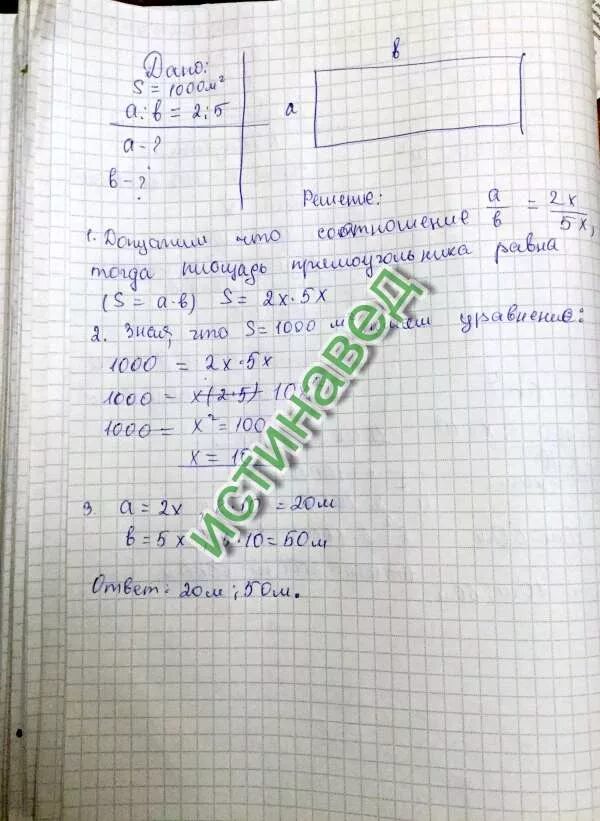 Дано:
S = 1000м²
a : в = 2 : 5
a - ?
в - ?
в
a
Решение:
1. Допустим что соотношение a/в = 2x/5x,
тогда площадь прямоугольника равна
(S = a·в) S = 2x·5x
2. Зная, что S = 1000 м уравнение:
1000 = 2x·5x
1000 = x(2·5)
1000 = x² = 100
x =
3. a = 2x = 20м
в = 5x · 10 = 50м
Ответ: 20м; 50м.
истинавед